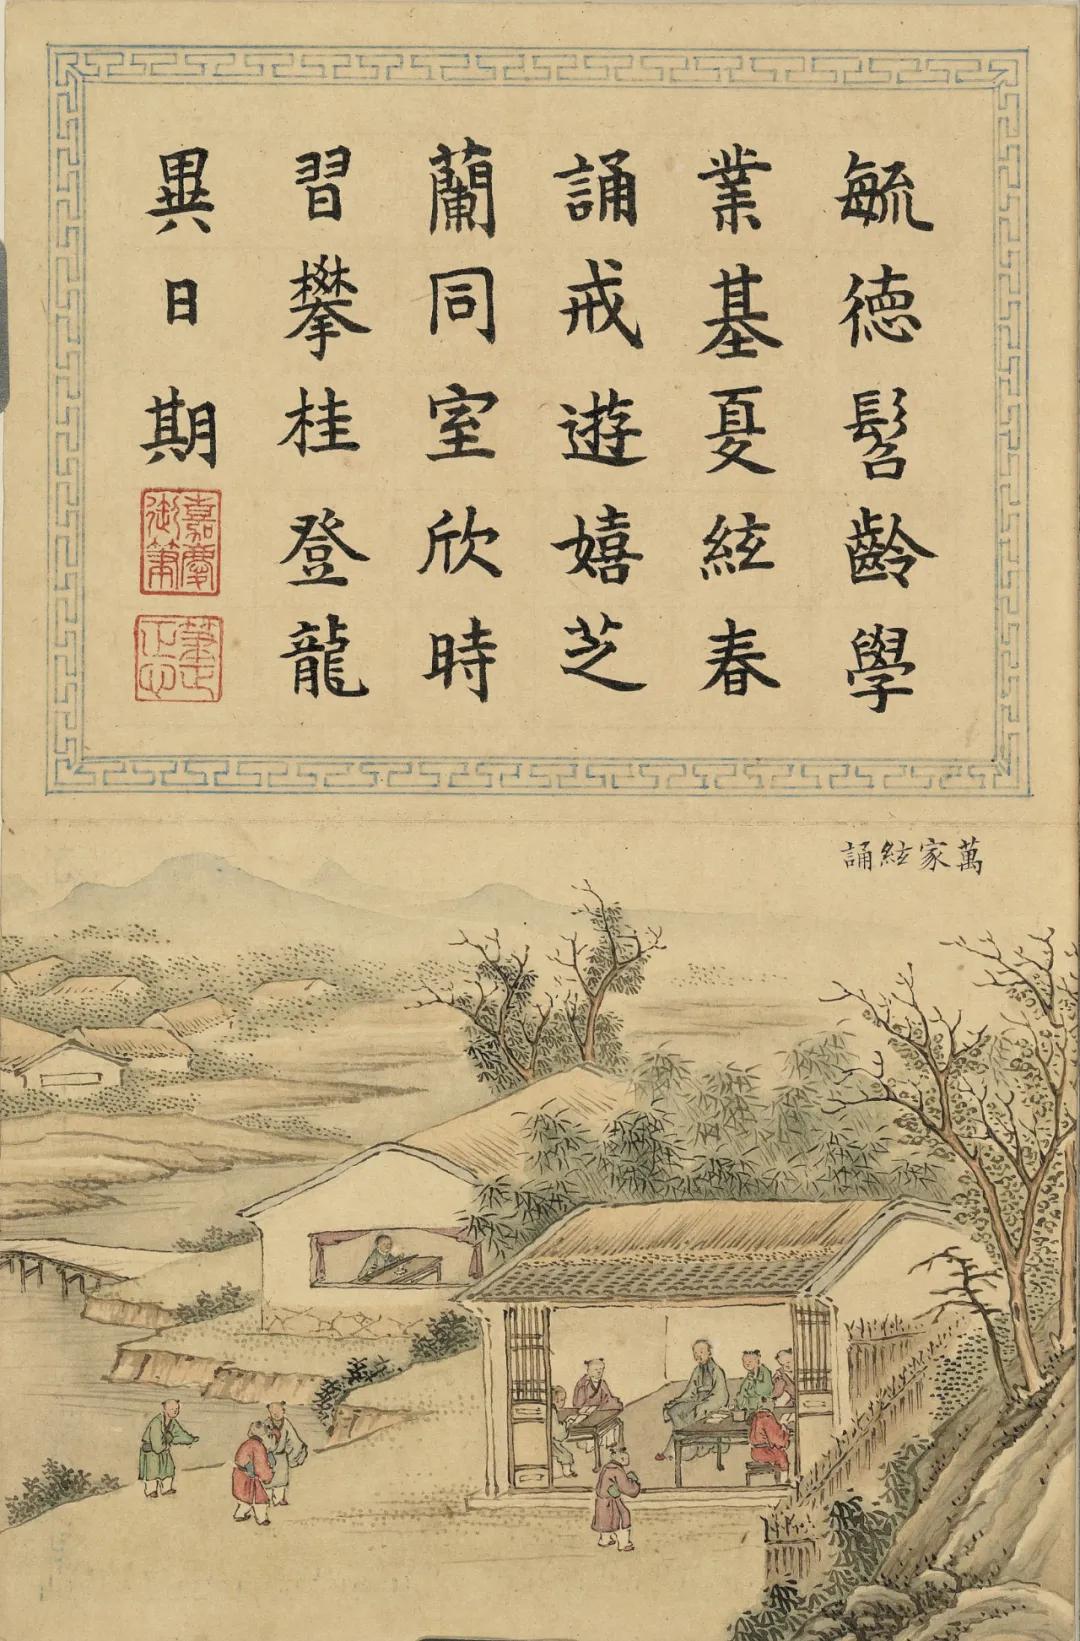 毓德髫齡學
業基夏絃春
誦戒遊嬉芝
蘭同室欣時
習攀桂登龍
異日期
嘉慶御筆
萬家絃誦